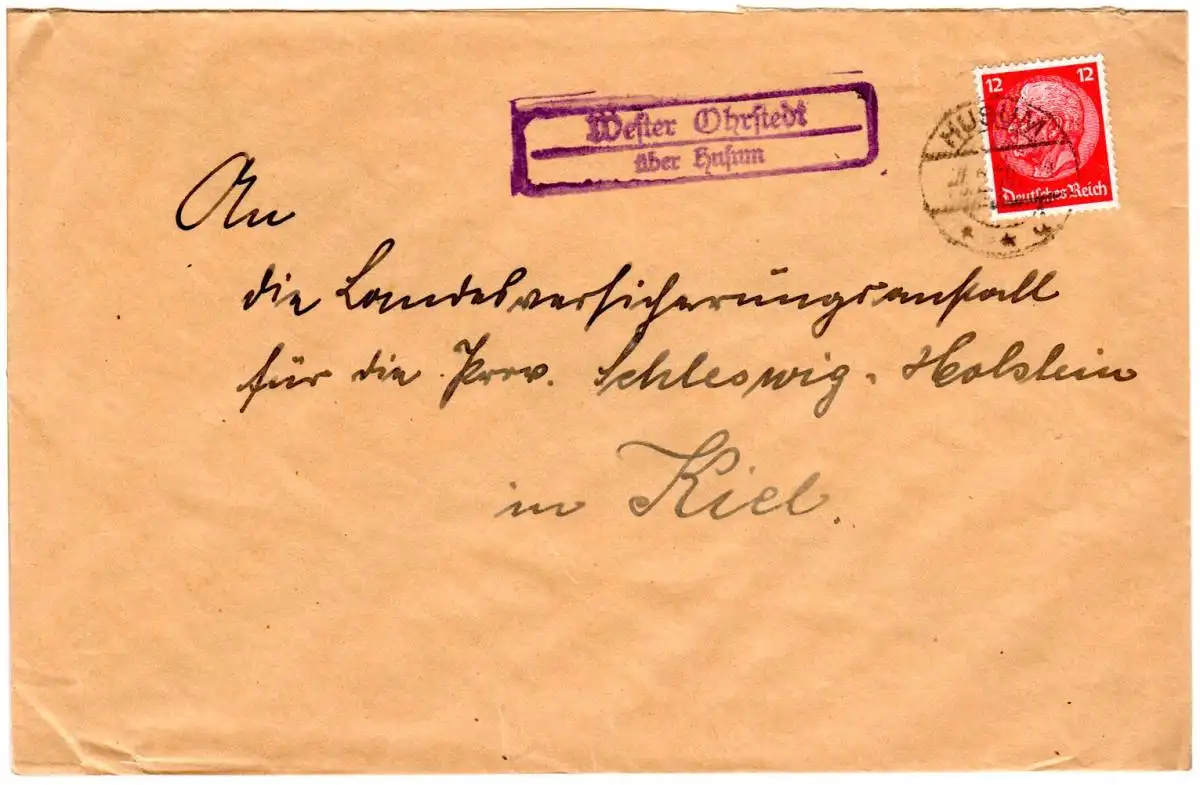 Wester Ohrstedt
über Husum
12 12
Deutsches Reich
HUSUM
An
die Landesversicherungsanstalt
für die Prov. Schleswig-Holstein
in Kiel.